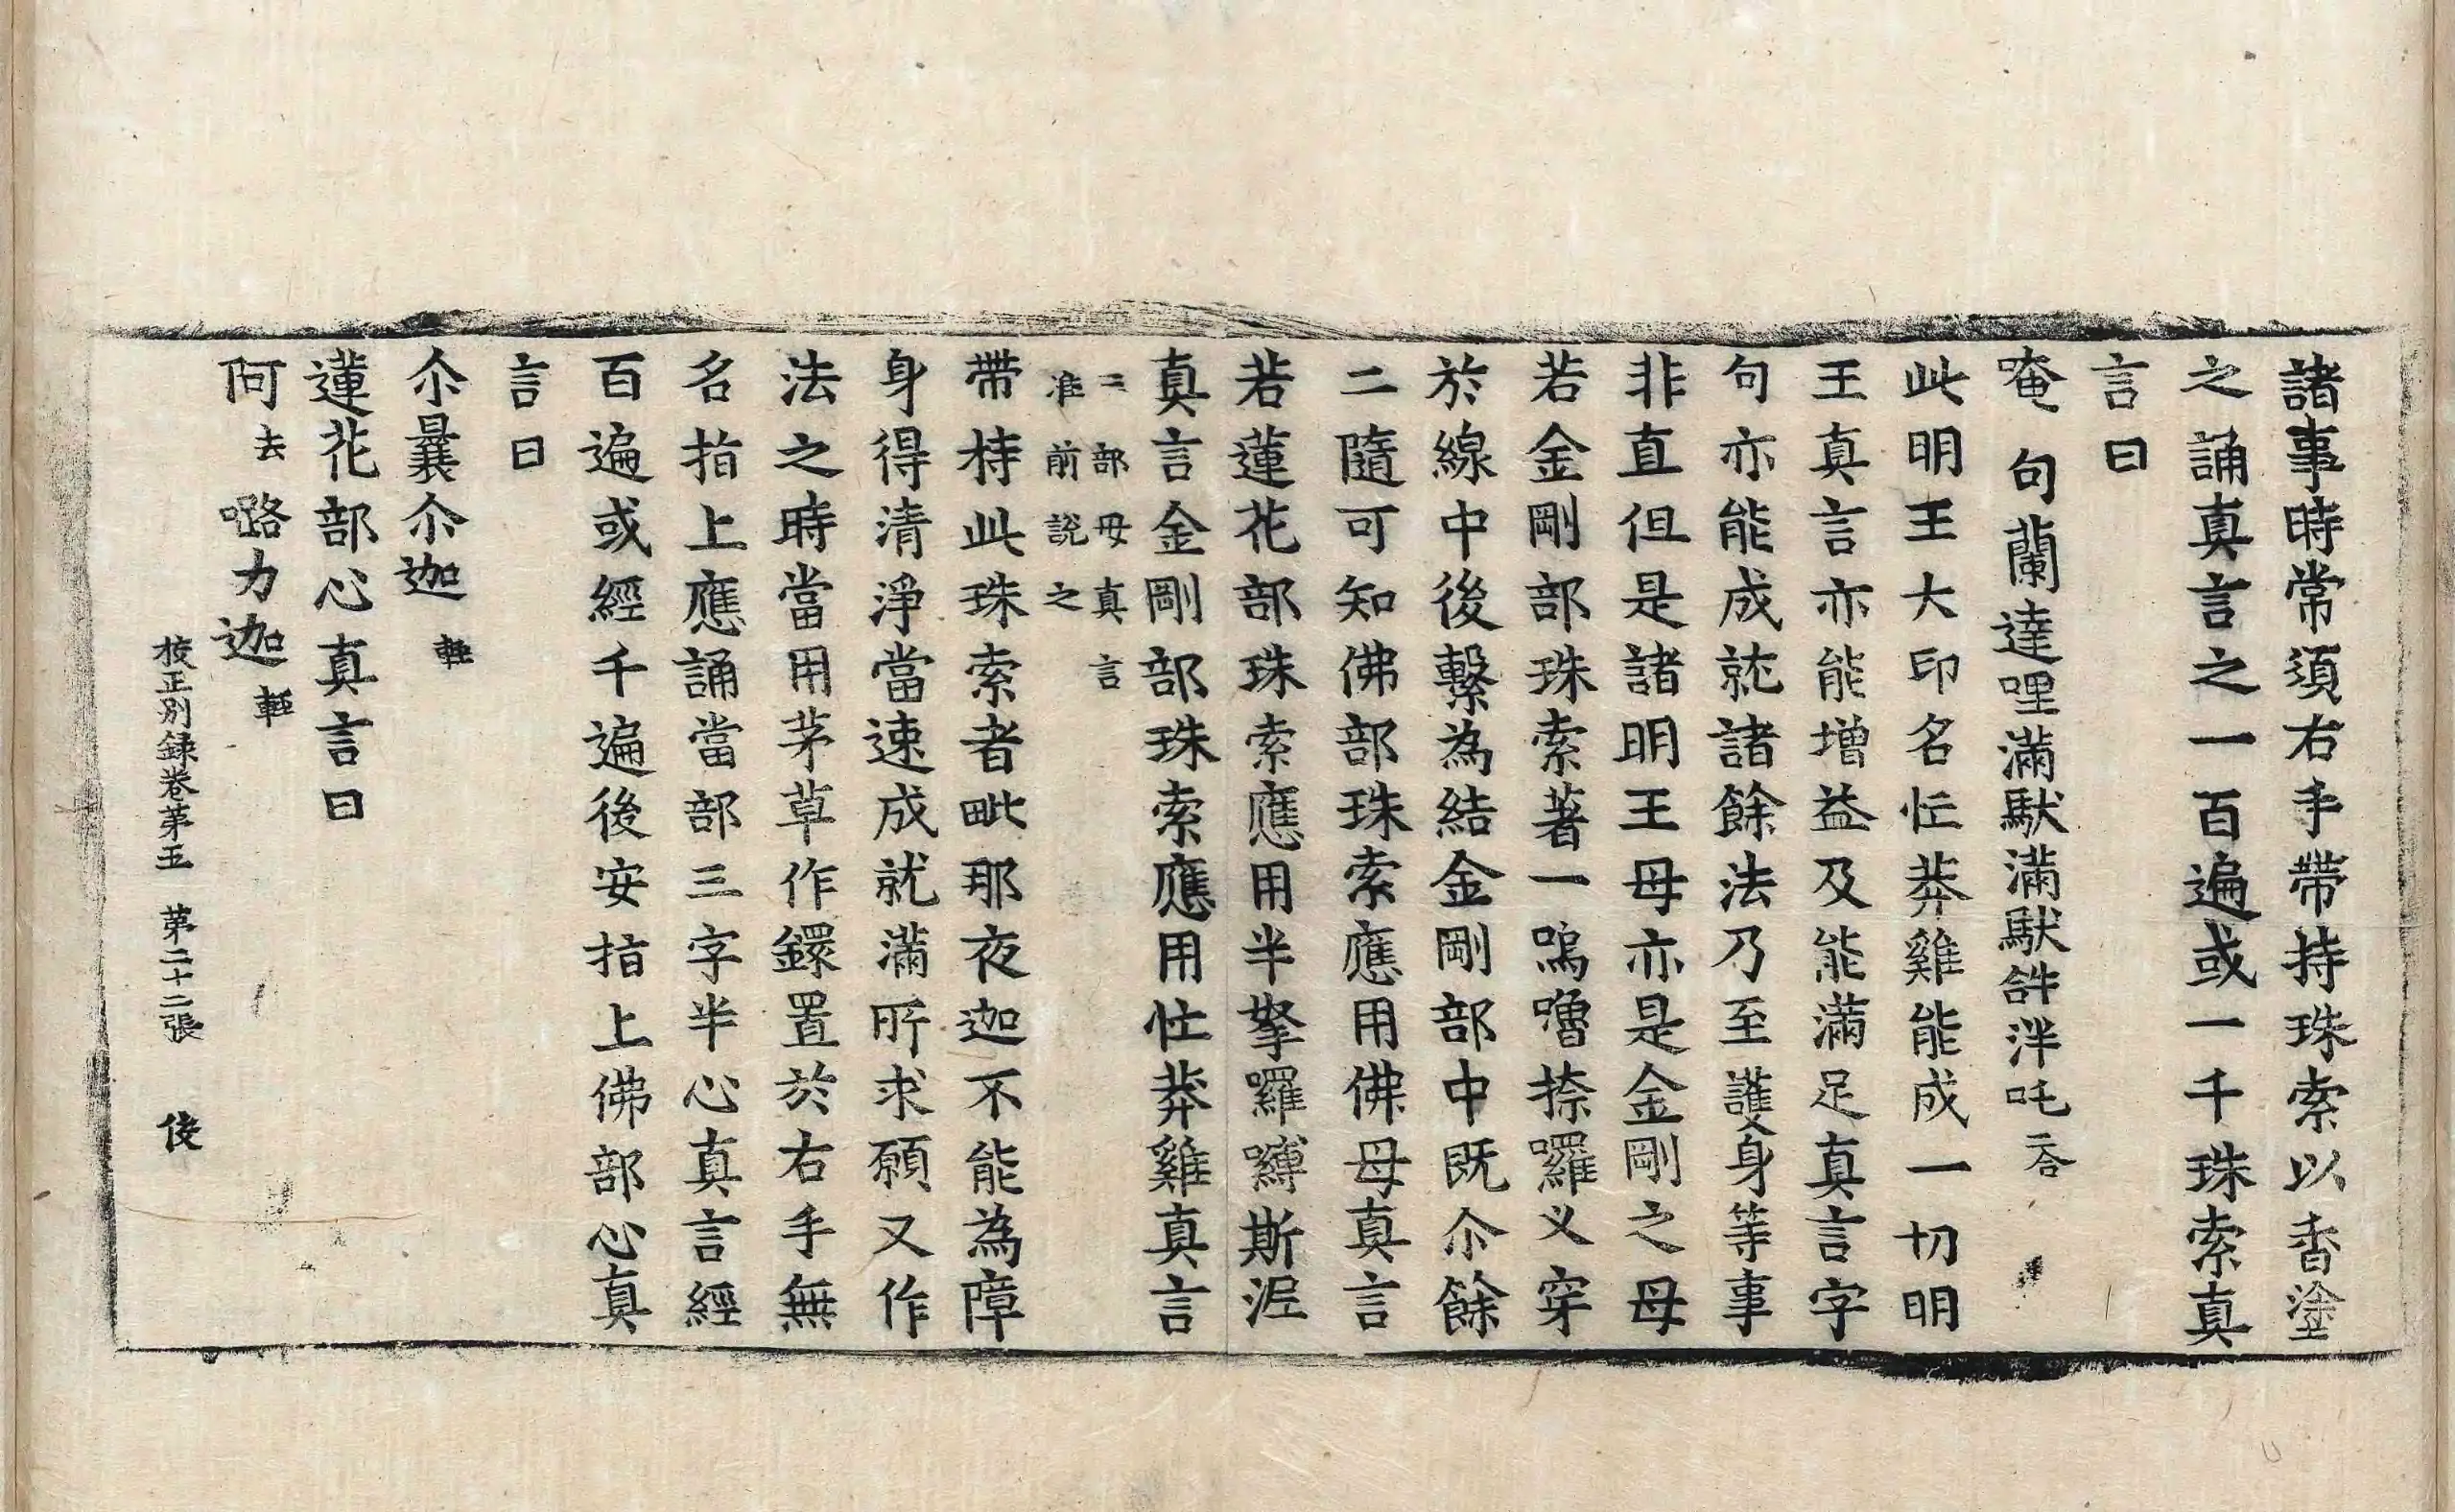 諸事時常須右手帶持珠索以香塗
之誦真言之一百遍或一千珠索真
言曰
唵句蘭達哩滿馱滿馱𤙖泮吒二合
此明王大印名忙莽雞能成一切明
王真言亦能增益及能滿足真言字
句亦能成就諸餘法乃至護身等事
非直但是諸明王母亦是金剛之母
若金剛部珠索著一嗚嚕捺囉叉穿
於線中後繫為結金剛部中既尒餘
二隨可知佛部珠索應用佛母真言
若蓮花部珠索應用半拏囉嚩斯泥
真言金剛部珠索應用忙莽雞真言
三部母真言
准前説之
帶持此珠索者毗那夜迦不能為障
身得清淨當速成就滿所求願又作
法之時當用茅草作鐶置於右手無
名指上應誦當部三字半心真言經
百遍或經千遍後安指上佛部心真
言曰
尒曩尒迦輕
蓮花部心真言曰
阿去嚕力迦輕
校正別録卷第五 第二十二張 俊